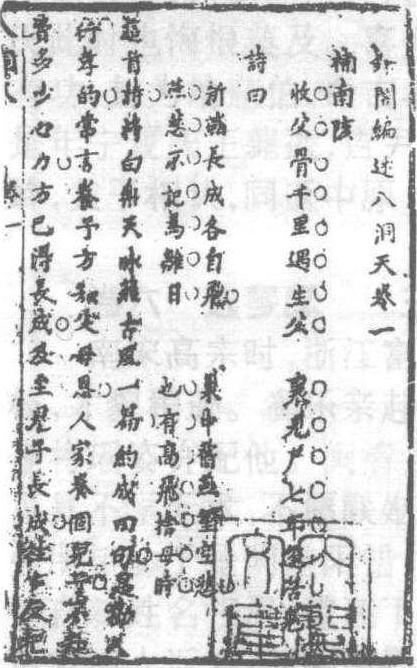 閣編述八洞天卷一
補南陔
收父骨千里遇生父　裹兒尸七年逢活兒
詩曰
新燕長成各自飛　巢中舊燕望空悲
燕悲不記為雛日　也有高飛捨母時
這首詩將白樂天咏燕古風一篇約成四句是勸人
行孝的常言養子方知父母恩人家養個兒子不知
費多少心力方巴得長成及至兒子長成往往反把
卷一